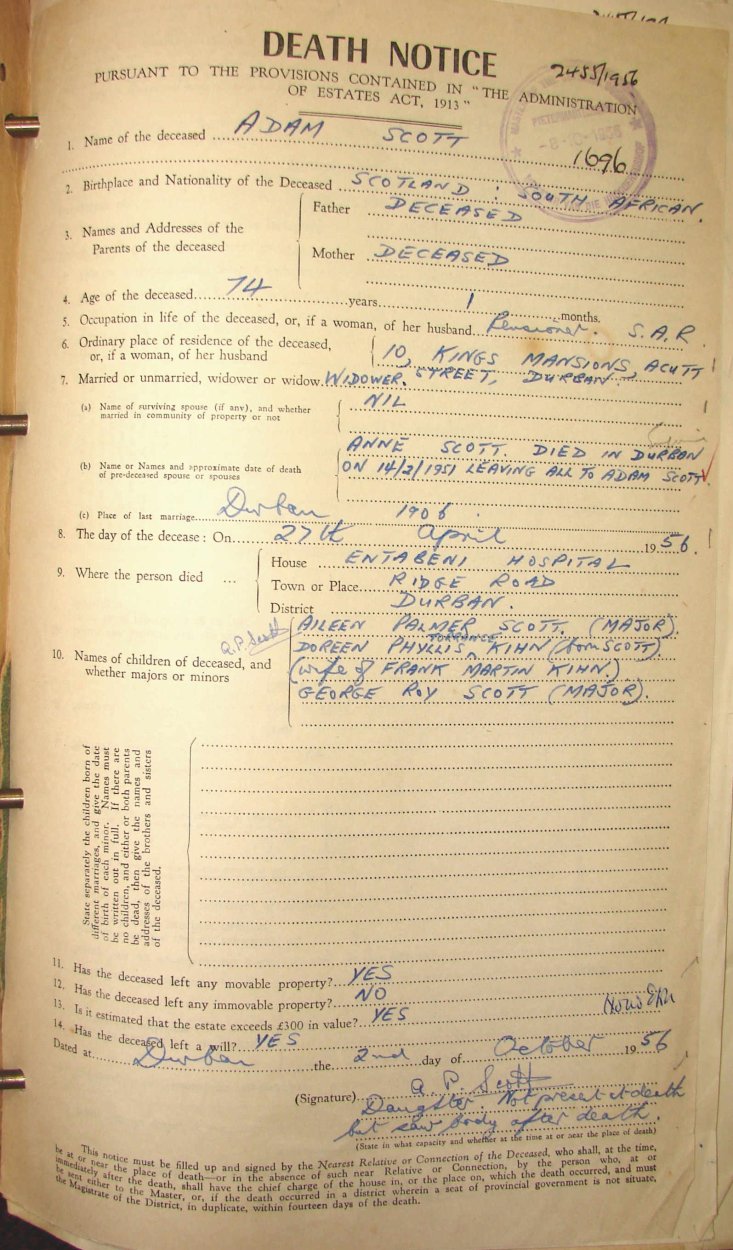 DEATH NOTICE
2455/1956
PURSUANT TO THE PROVISIONS CONTAINED IN "THE ADMINISTRATION
OF ESTATES ACT, 1913"
1. Name of the deceased ADAM SCOTT
1696
2. Birthplace and Nationality of the Deceased SCOTLAND : SOUTH AFRICAN.
3. Names and Addresses of the Parents of the deceased
Father DECEASED
Mother DECEASED
4. Age of the deceased 74 years 1 months.
5. Occupation in life of the deceased, or, if a woman, of her husband Pensioner. S.A.R.
6. Ordinary place of residence of the deceased,
or, if a woman, of her husband
10, KINGS MANSIONS, ACUTT
7. Married or unmarried, widower or widow. WIDOWER. STREET, DURBAN.
(a) Name of surviving spouse (if any), and whether
married in community of property or not
NIL
(b) Name or Names and approximate date of death
of pre-deceased spouse or spouses
ANNE SCOTT. DIED IN DURBAN
ON 14/2/1951 LEAVING ALL TO ADAM SCOTT
(c) Place of last marriage Durban 1906.
8. The day of the decease : On 27th April 1956.
9. Where the person died ...
House ENTABENI HOSPITAL
Town or Place RIDGE ROAD
District DURBAN.
A.P. Scott
10. Names of children of deceased, and
whether majors or minors
AILEEN PALMER SCOTT. (MAJOR).
TORRANCE
DOREEN PHYLLIS KIHN (born SCOTT)
(wife of FRANK MARTIN KIHN)
GEORGE ROY SCOTT (MAJOR).
State separately the children born of
different marriages, and give the date
of birth of each minor. Names must
be written out in full. If there are
no children, and either or both parents
be dead, then give the names and
addresses of the brothers and sisters
of the deceased.
11. Has the deceased left any movable property? YES
12. Has the deceased left any immovable property? NO
13. Is it estimated that the estate exceeds £300 in value? YES
14. Has the deceased left a will? YES
Dated at Durban the 2nd day of October 1956
(Signature) A. P. Scott
Daughter Not present at death
but saw body after death.
(State in what capacity and whether at the time at or near the place of death)
This notice must be filled up and signed by the Nearest Relative or Connection of the Deceased, who shall, at the time,
be at or near the place of death—or in the absence of such near Relative or Connection, by the person who, at or
immediately after the death, shall have the chief charge of the house in, or the place on, which the death occurred, and must
be sent either to the Master, or, if the death occurred in a district wherein a seat of provincial government is not situate,
the Magistrate of the District, in duplicate, within fourteen days of the death.